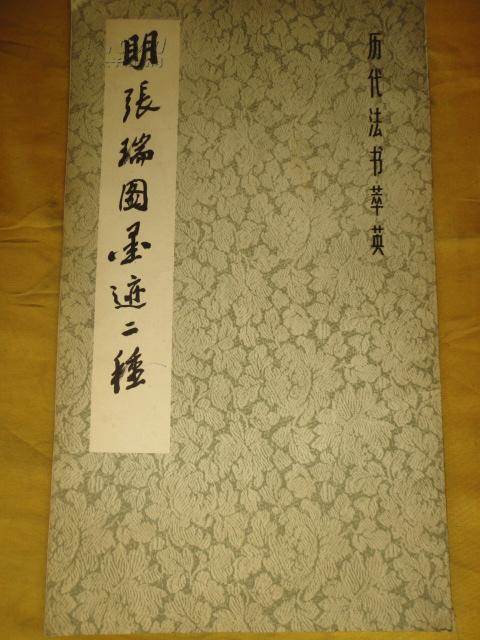 历代法书萃英
明張瑞图墨迹二種